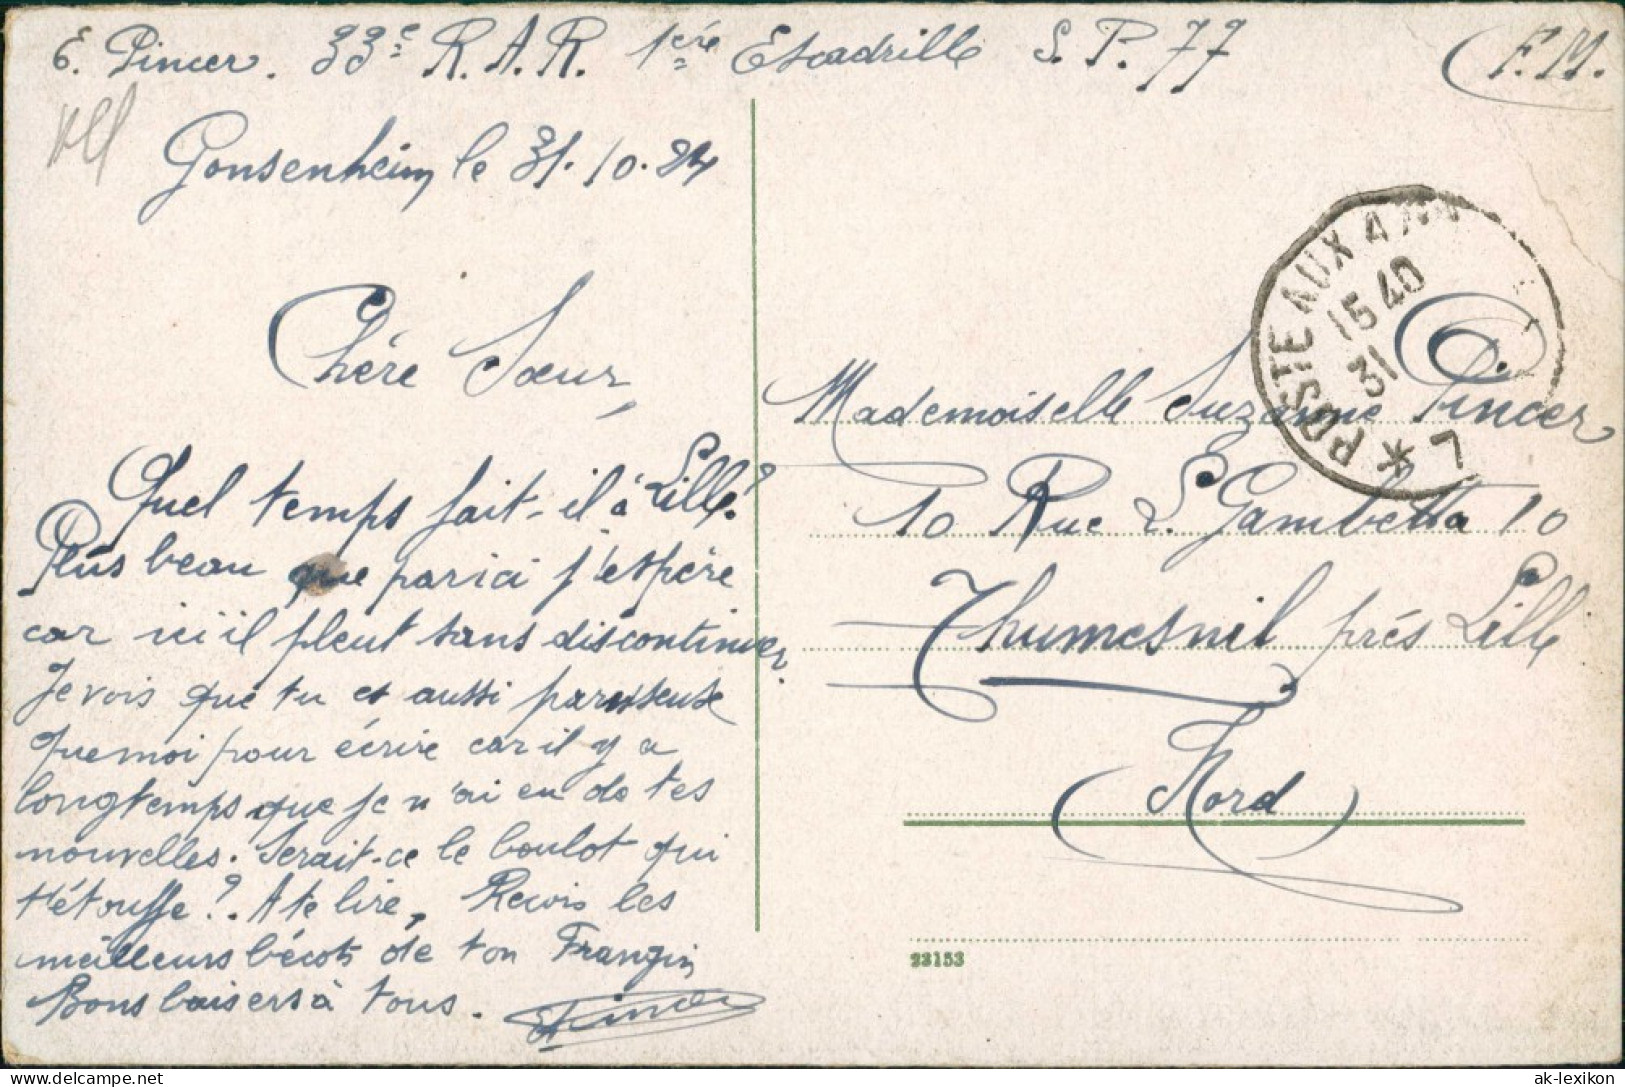 E. Pincer. 33e R.A.R. 1ère Escadrille S.P. 77 (F.M.
Gonsenheim le 31.10.24
Chère Sœur,
Quel temps fait-il à Lille?
Plus beau que par ici j'espère
car ici il pleut sans discontinuer.
Je vois que tu es aussi paresseuse
que moi pour écrire car il y a
longtemps que je n'ai eu de tes
nouvelles. Serait-ce le boulot qui
t'étouffe?. A te lire, Recois les
meilleurs bécots de ton Frangin
Bons baisers à tous. EPincer
POSTE AUX ARM
15 40
31
* 7
Mademoiselle Suzanne Pincer
10 Rue L. Gambetta 10
Thumesnil près Lille
(Nord)
23153
delcampe.net
ak-lexikon